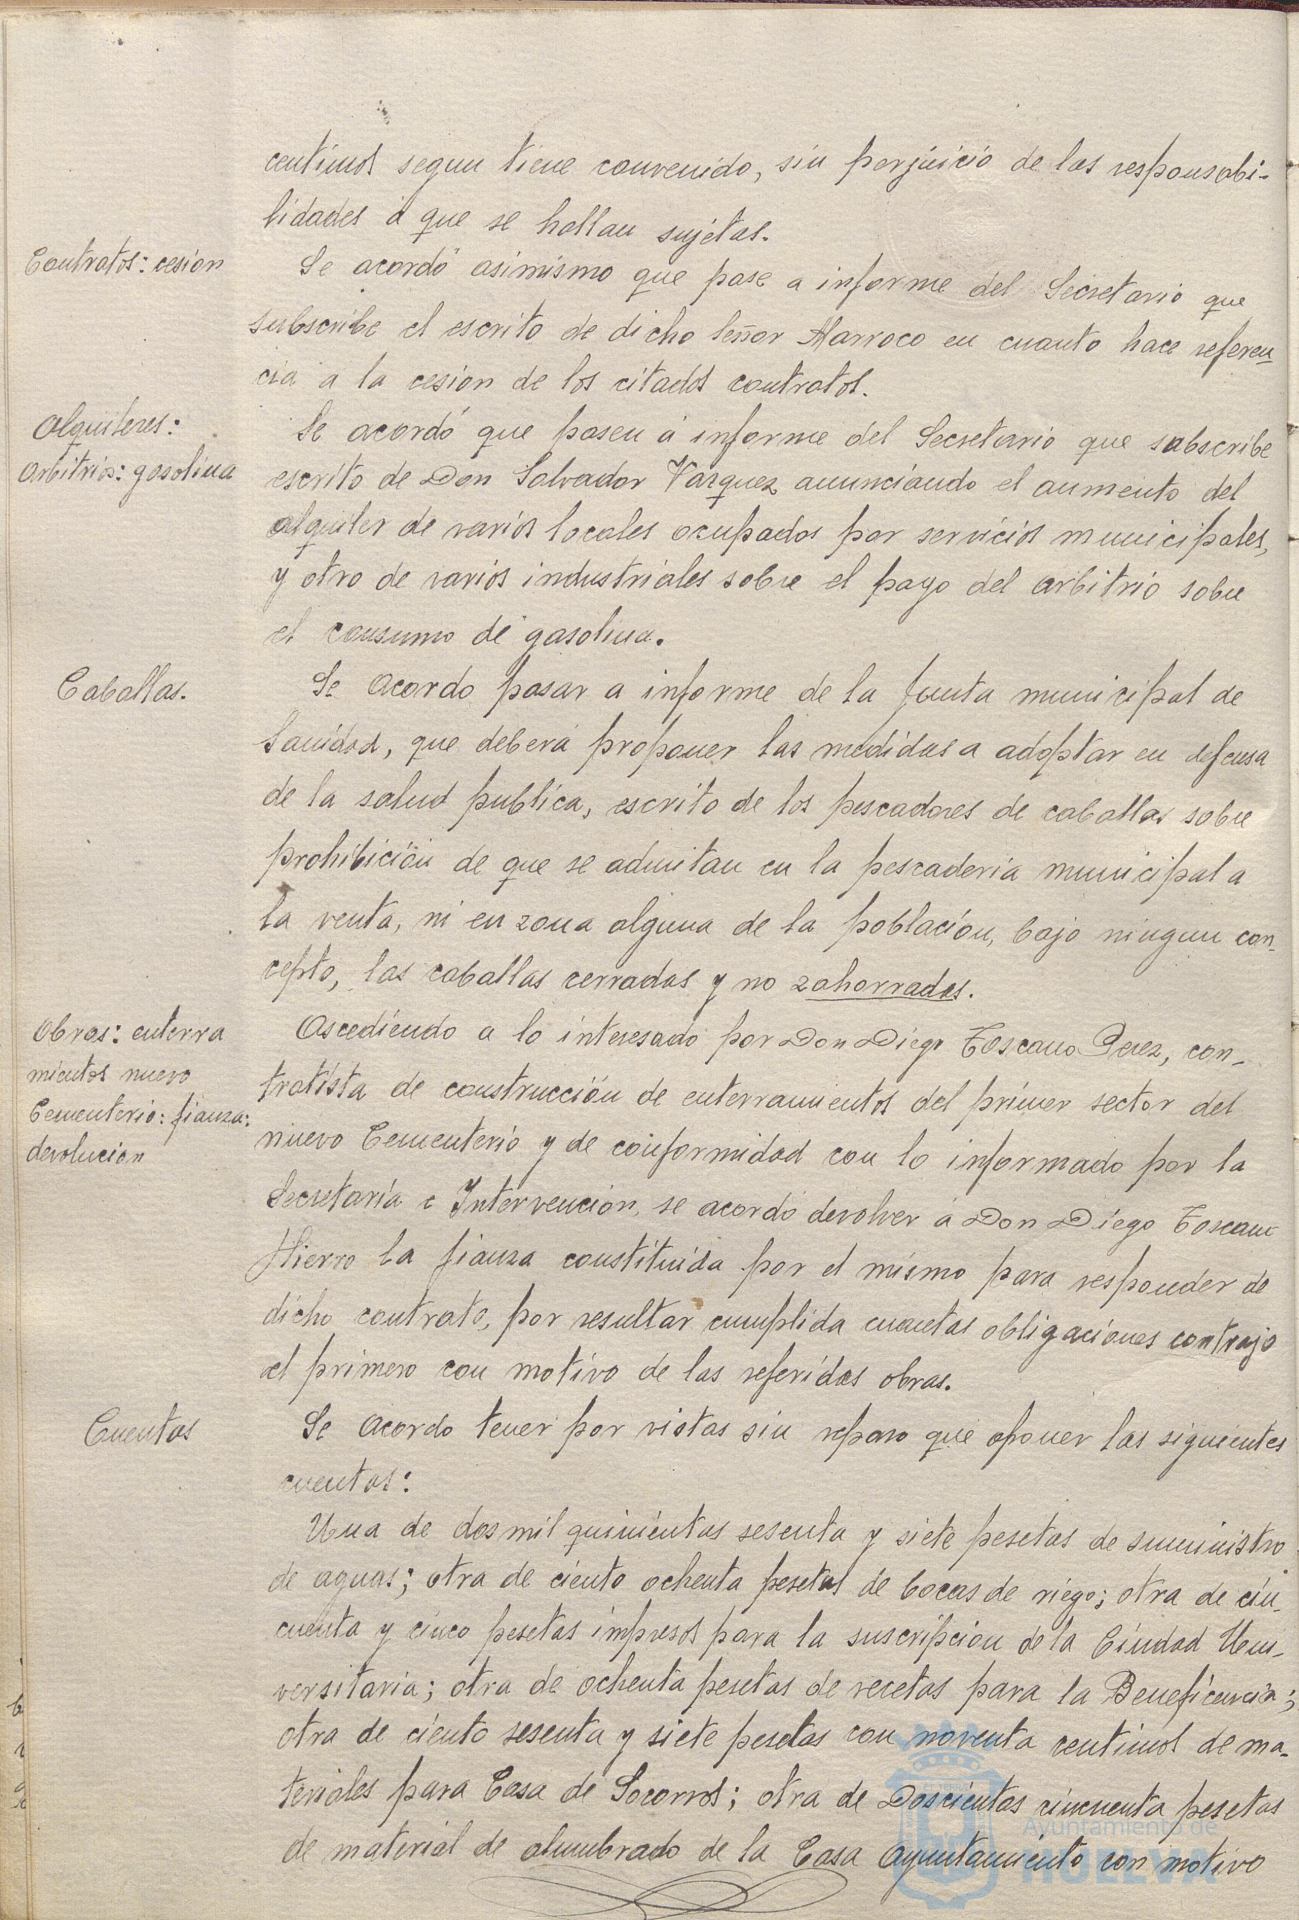 centimos segun tiene convenido, sin perjuicio de las responsabi-
lidades á que se hallan sujetas.
Contratos: cesion
Se acordó asimismo que pase a informe del Secretario que
subscribe el escrito de dicho Señor Marroco en cuanto hace referen
cia a la cesion de los citados contratos.
Alquileres:
Arbitrios: gasolina
Se acordó que pasen á informe del Secretario que subscribe
escrito de Don Salvador Vazquez anunciando el aumento del
alquiler de varios locales ocupados por servicios municipales,
y otro de varios industriales sobre el pago del arbitrio sobre
el consumo de gasolina.
Caballas.
Se acordo pasar a informe de la Junta municipal de
Sanidad, que deberá proponer las medidas a adoptar en defensa
de la salud publica, escrito de los pescadores de caballas sobre
prohibición de que se admitan en la pescaderia municipal a
la venta, ni en zona alguna de la población, bajo ningun con-
cepto, las caballas cerradas y no zahorradas.
Obras: enterra
mientos nuevo
Cementerio: fianza:
devolucion
Accediendo a lo interesado por Don Diego Toscano Perez, con-
tratista de construcción de enterramientos del primer sector del
nuevo Cementerio y de conformidad con lo informado por la
Secretaría e Intervención, se acordó devolver á Don Diego Toscano
Hierro la fianza constituida por el mismo para responder de
dicho contrato, por resultar cumplida cuantas obligaciones contrajo
el primero con motivo de las referidas obras.
Cuentas
Se acordo tener por vistas sin reparo que oponer las siguientes
cuentas:
Una de dos mil quinientas sesenta y siete pesetas de suministro
de aguas; otra de ciento ochenta pesetas de bocas de riego; otra de cin-
cuenta y cinco pesetas impresos para la suscripcion de la Ciudad Uni-
versitaria; otra de ochenta pesetas de recetas para la Beneficencia;
otra de ciento sesenta y siete pesetas con noventa centimos de ma-
teriales para Casa de Socorros; otra de Doscientas cincuenta pesetas
de material de alumbrado de la Casa Ayuntamiento con motivo
Ayuntamiento de
HUELVA